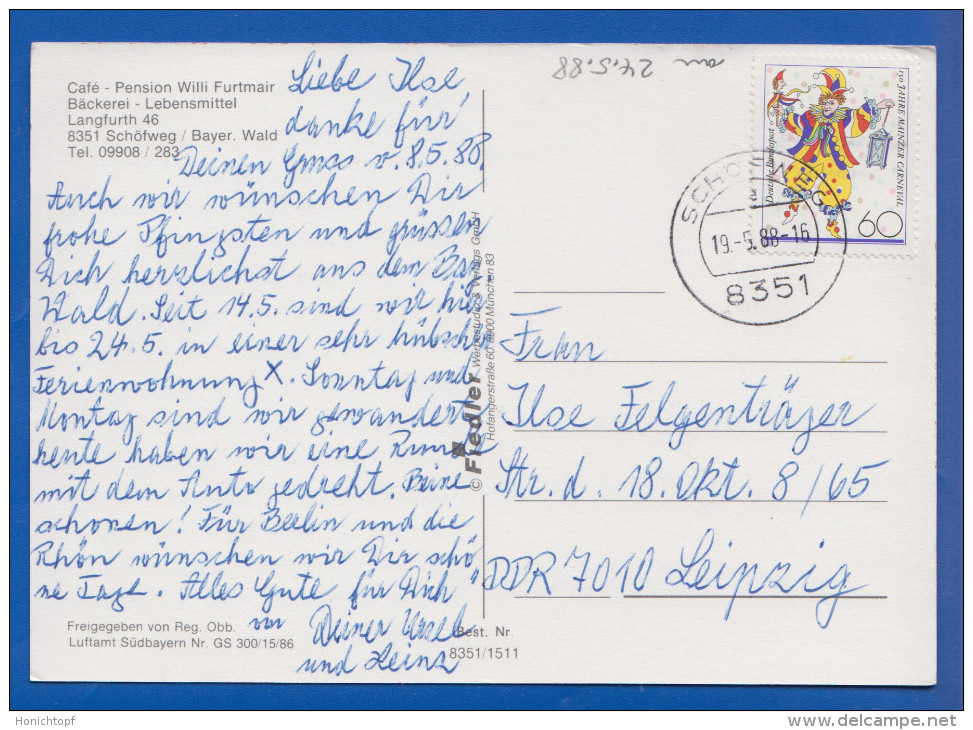 Café - Pension Willi Furtmair
Bäckerei - Lebensmittel
Langfurth 46
8351 Schöfweg / Bayer. Wald
Tel. 09908 / 283
Liebe Ilse,
danke für
Deinen Gruss v. 8.5.88.
Auch wir wünschen Dir
frohe Pfingsten und grüssen
Dich herzlichst aus dem Bay.
Wald. Seit 14.5. sind wir hier
bis 24.5. in einer sehr hübschen
Ferienwohnung X. Sonntag und
Montag sind wir gewandert
heute haben wir eine Runde
mit dem Auto gedreht. Beine
schonen! Für Berlin und die
Rhön wünschen wir Dir schö
ne Tage. Alles Gute für Dich
von Deiner Ursel
und Heinz
Freigegeben von Reg. Obb.
Luftamt Südbayern Nr. GS 300/15/86
Best. Nr.
8351/1511
© Fiedler Werbestudio & Verlags GmbH
Hofangerstraße 60, 8000 München 83
an 24.5.88
150 JAHRE MAINZER CARNEVAL
Deutsche Bundespost
60
19.-5.88-16
8351
Frau
Ilse Felgenträger
Str. d. 18. Okt. 8/65
DDR 7010 Leipzig
Honichtopf
www.delcampe.net